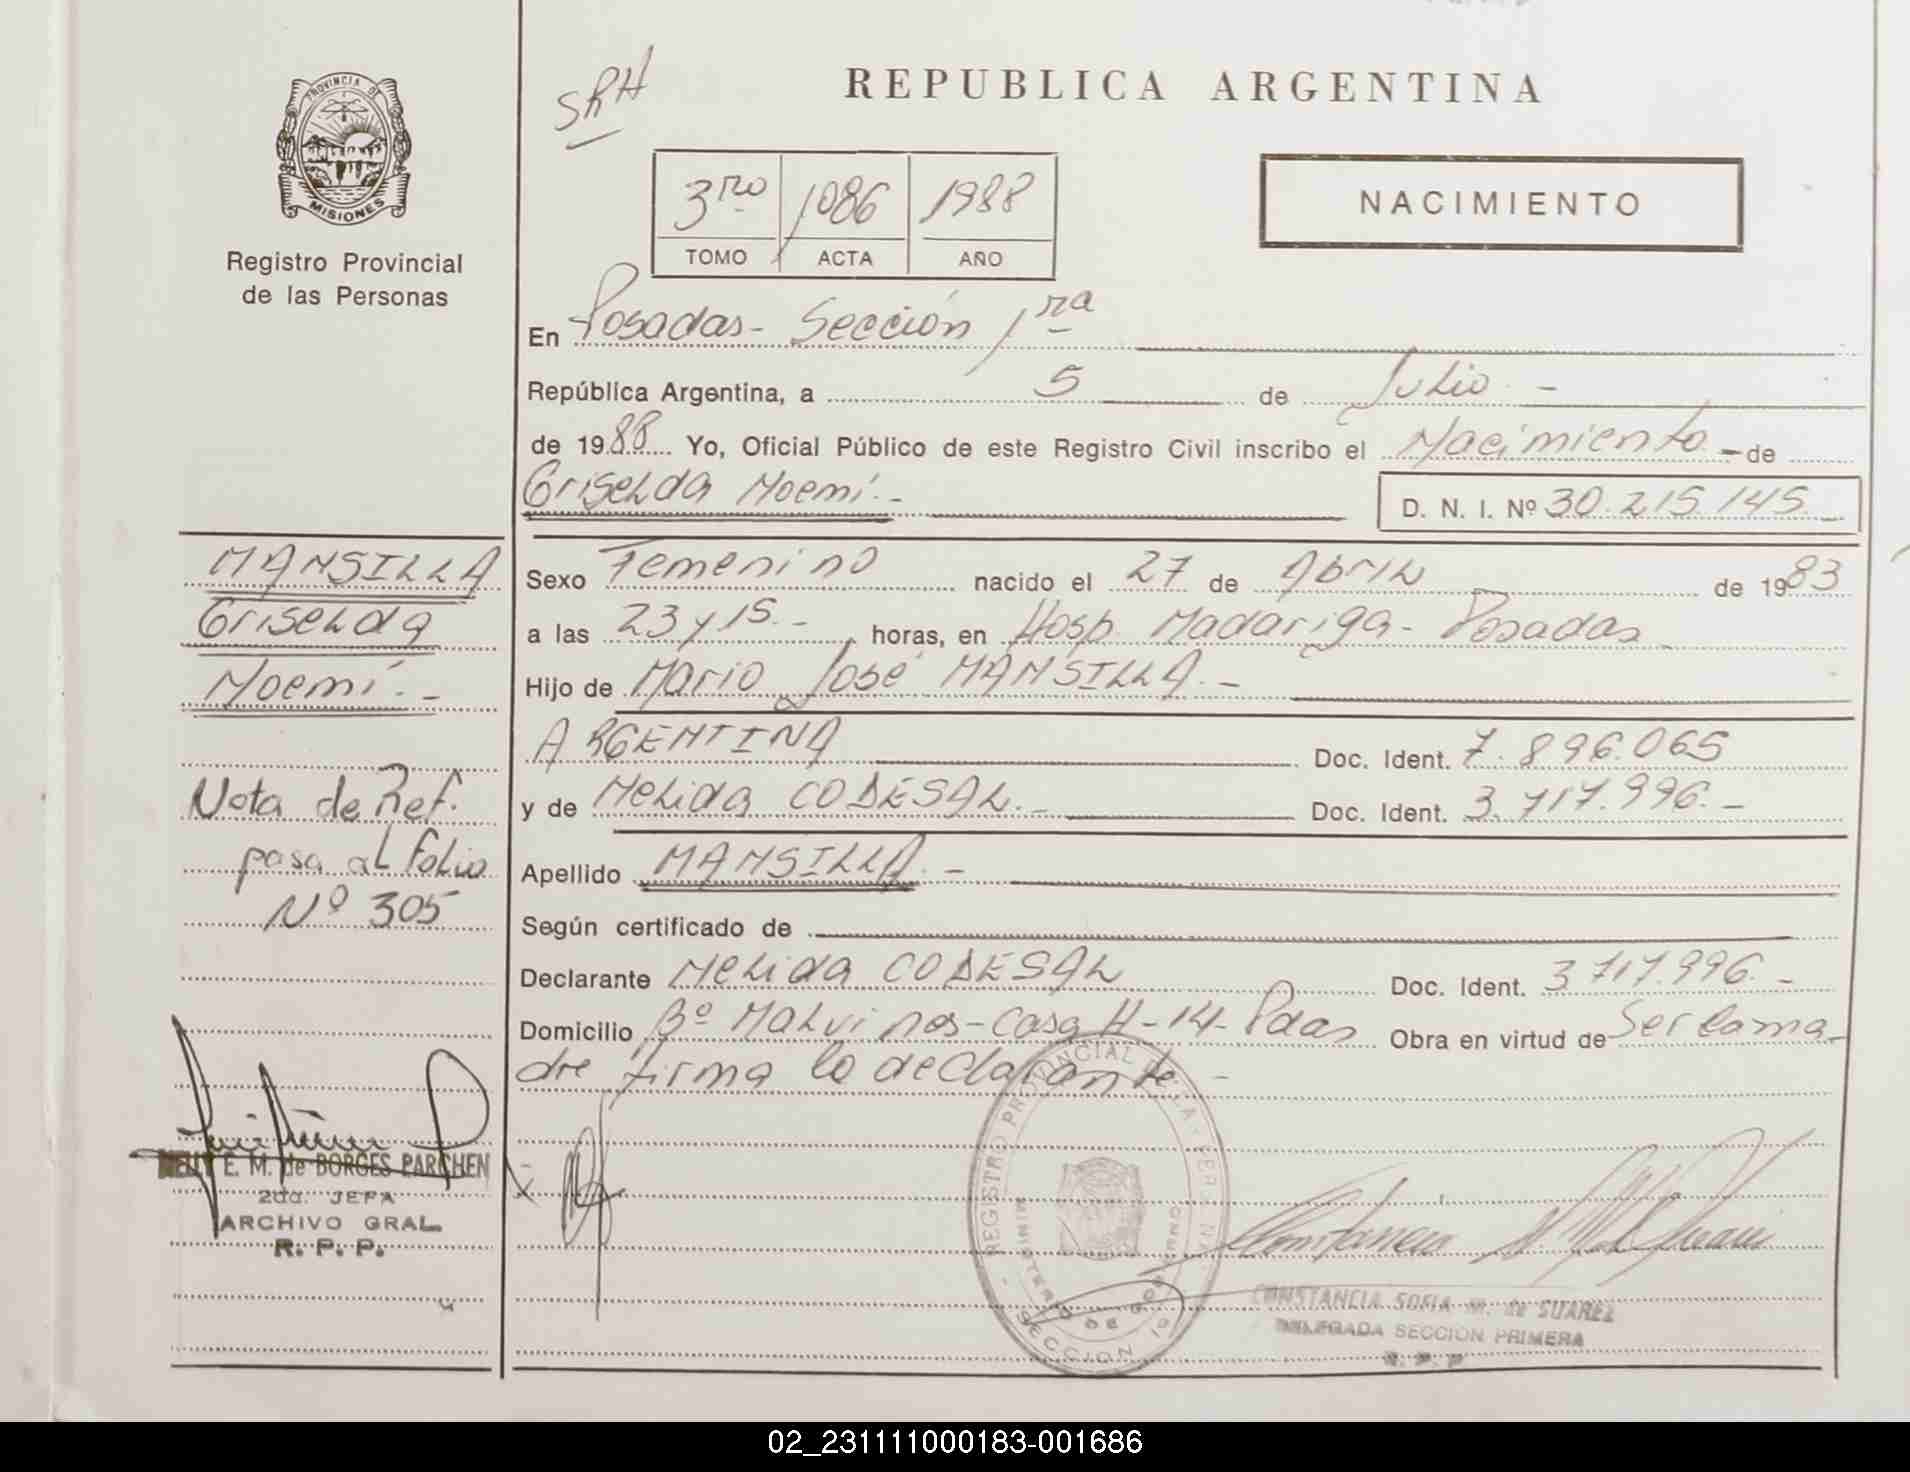 SRH
REPUBLICA ARGENTINA
PROVINCIA DE
MISIONES
Registro Provincial
de las Personas
3ro 1086 1988
TOMO ACTA AÑO
NACIMIENTO
En Posadas - Sección 1ra
República Argentina, a 5 de Julio -
de 1988 Yo, Oficial Público de este Registro Civil inscribo el Nacimiento - de
Griselda Noemí. -
D. N. I. Nº 30.215.145 -
MANSILLA
Griselda
Noemí. -
Sexo Femenino nacido el 27 de Abril de 1983
a las 23 y 15. - horas, en Hosp. Madariaga - Posadas
Hijo de Mario José MANSILLA. -
ARGENTINA Doc. Ident. 7.896.065
y de Nelida CODESAL. - Doc. Ident. 3.717.996. -
Apellido MANSILLA. -
Según certificado de
Declarante Nelida CODESAL Doc. Ident. 3.717.996. -
Domicilio Bº Malvinas - Casa H-14 - Pdas Obra en virtud de Ser la ma-
dre firma la declarante. -
Nota de Ref.
pasa al folio
Nº 305
NELLY E. M. de BORGES PARCHEN
2da. JEFA
ARCHIVO GRAL.
R. P. P.
REGISTRO PROVINCIAL DE LAS PERSONAS
MINISTERIO DE GOBIERNO
SECCION
CONSTANCIA SOFIA M. de SUAREZ
DELEGADA SECCION PRIMERA
R. P. P.
02_231111000183-001686